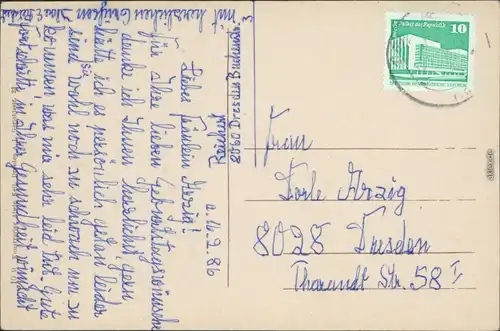 Reichert
8060 Dresden Buchenstr. 3
d. 16.2.86
Liebes Fräulein Arzig!
Für Ihre lieben Geburtstagswünsche
danke ich Ihnen herzlich, gern
hätt ich es persönlich getan leider
sind Sie wohl noch zu schwach um zu
kommen was mir sehr leid tut. Gute
Fortschritte in Ihrer Gesundheit wünscht
mit herzlichen Grüßen
10
Frau
Dorle Arzig
8028 Dresden
Tharandt Str. 58 I